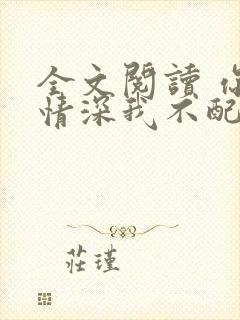 全文閱讀 你
情深我不配
莊瑾